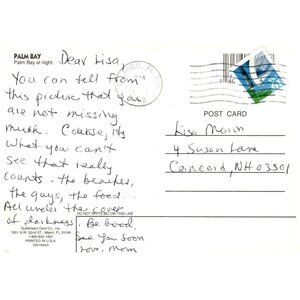 PALM BAY
Palm Bay at night.
Dear Lisa,
You can tell from
this picture that you
are not missing
much. Course, its
what you can't
see that really
counts - the beaches,
the guys, the food...
All under the cover
of darkness. Be Good,
See You Soon
Love, Mom
DO NOT WRITE BELOW THIS LINE
POST CARD
Lisa
4 Susan Lane
Concord, NH 03301
Gulfstream Card Co., Inc.
PRINTED IN U.S.A.